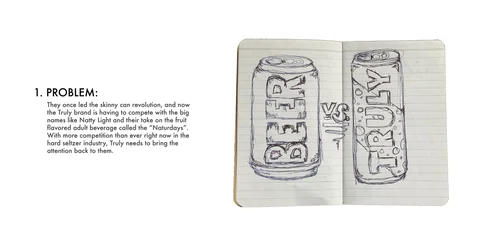 1. PROBLEM:
They once led the skinny can revolution, and now
the Truly brand is having to compete with the big
names like Natty Light and their take on the fruit
flavored adult beverage called the "Naturdays".
With more competition than ever right now in the
hard seltzer industry, Truly needs to bring the
attention back to them.
BEER
VS
TRULY